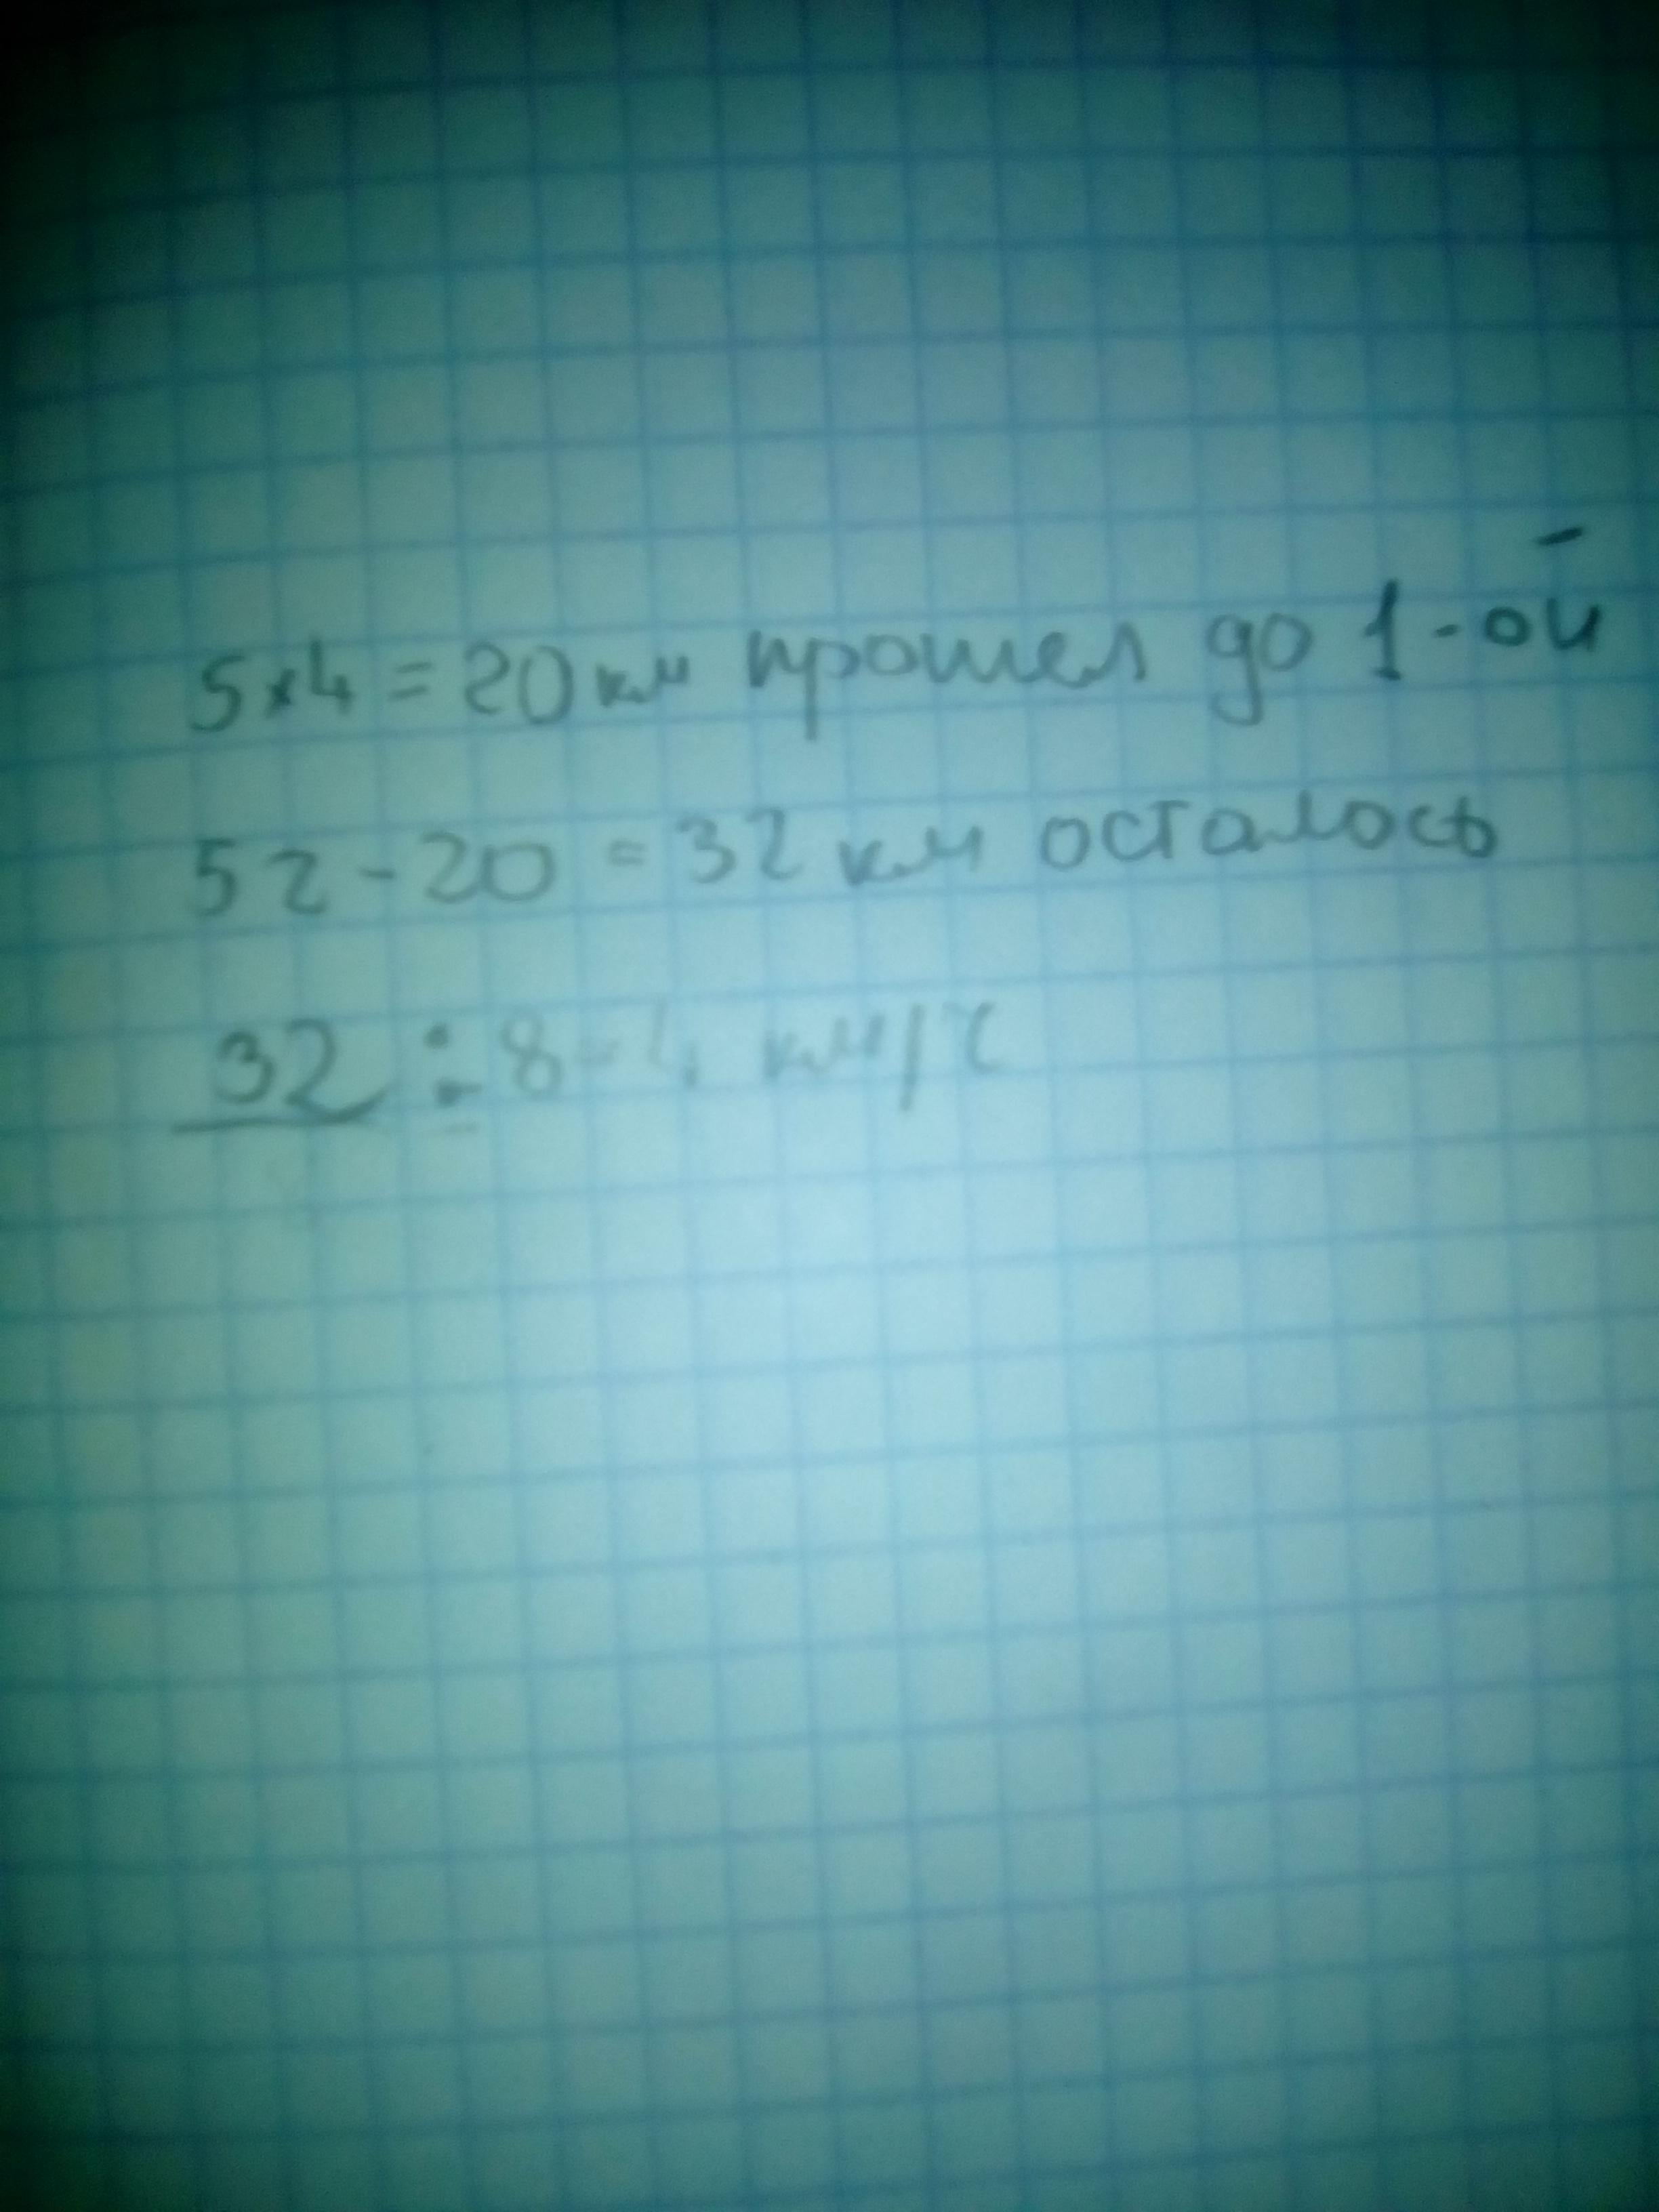 5×4=20км прошел до 1-ой
52-20=32км осталось
32:8=4 км/ч